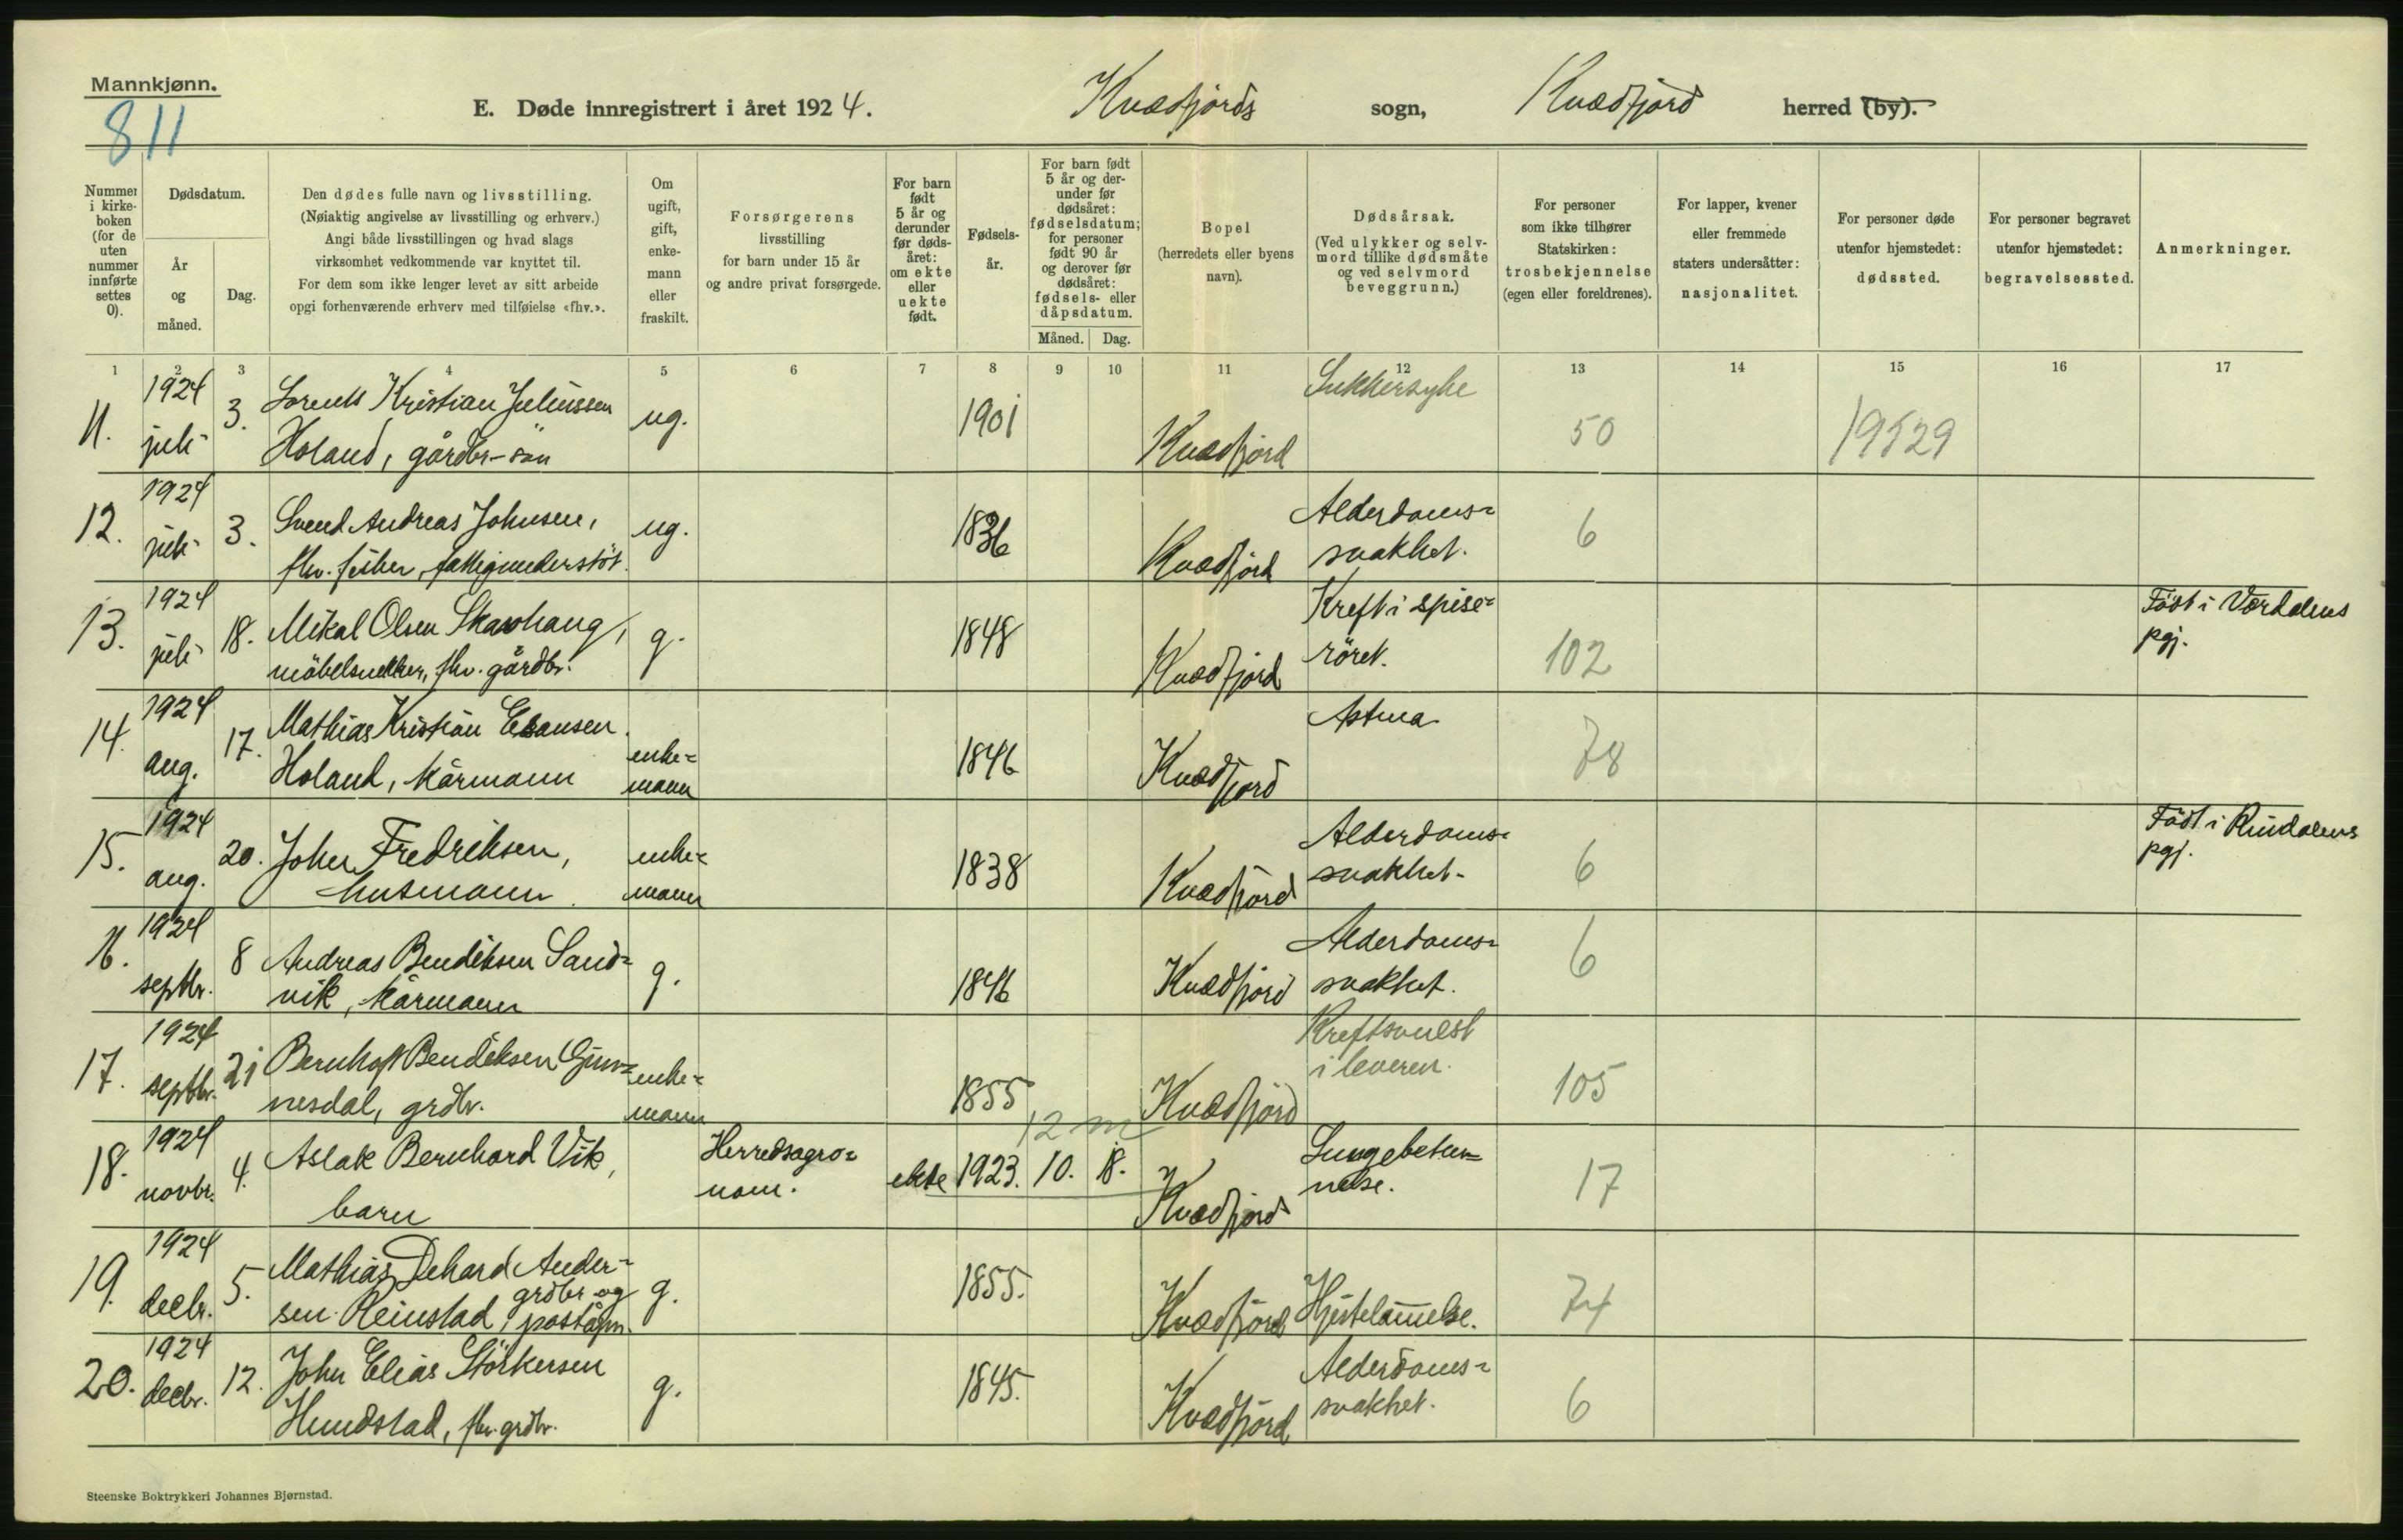 Mannkjønn.
811
E. Døde innregistrert i året 1924. Kvædfjords sogn, Kvædfjord herred (by).
Nummer i kirkeboken (for de uten nummer innførte settes 0).
Dødsdatum.
År og måned.
Dag.
Den dødes fulle navn og livsstilling.
(Nøiaktig angivelse av livsstilling og erhverv.)
Angi både livsstillingen og hvad slags
virksomhet vedkommende var knyttet til.
For dem som ikke lenger levet av sitt arbeide
opgi forhenværende erhverv med tilføielse «fhv.».
Om ugift, gift, enkemann eller fraskilt.
Forsørgerens
livsstilling
for barn under 15 år
og andre privat forsørgede.
For barn født 5 år og derunder før dødsåret: om ekte eller uekte født.
Fødselsår.
For barn født 5 år og derunder før dødsåret: fødselsdatum; for personer født 90 år og derover før dødsåret: fødsels- eller dåpsdatum.
Måned. Dag.
Bopel
(herredets eller byens
navn).
Dødsårsak.
(Ved ulykker og selvmord tillike dødsmåte og ved selvmord beveggrunn.)
For personer
som ikke tilhører
Statskirken:
trosbekjennelse
(egen eller foreldrenes).
For lapper, kvener
eller fremmede
staters undersåtter:
nasjonalitet.
For personer døde
utenfor hjemstedet:
dødssted.
For personer begravet
utenfor hjemstedet:
begravelsessted.
Anmerkninger.
1 2 3 4 5 6 7 8 9 10 11 12 13 14 15 16 17
11. 1924 juli 3. Lorents Kristian Juliussen
Holand, gårdbr-sön ug. 1901 Kvædfjord Sukkersyke 50 19529
12. 1924 juli 3. Svend Andreas Johnsen,
fhv. fisker, fattigunderstöt. ug. 1836 Kvædfjord Alderdoms-
svakhet. 6
13. 1924 juli 18. Mikal Olsen Skavhaug,
möbelsnekker, fhv. gårdbr. g. 1848 Kvædfjord Kreft i spise-
röret. 102 Födt i Værdalens
pgj.
14. 1924 aug. 17. Mathias Kristian
Holand, kårmann enke-
mann 1846 Kvædfjord Astma 78
15. 1924 aug. 20. John Fredriksen,
husmann. enke-
mann 1838 Kvædfjord Alderdoms-
svakhet. 6 Födt i Rindalens
pgj.
16. 1924 septbr. 8 Andreas Bendiksen Sand-
vik, kårmann g. 1846 Kvædfjord Alderdoms-
svakhet. 6
17. 1924 septbr. 21 Bernhoft Bendiksen Gjun-
nesdal, grdbr. enke-
mann 1855 Kvædfjord Kreftsvulst
i leveren. 105
12 m
18. 1924 novbr. 4. Aslak Bernhard Vik,
barn Herredsagro-
nom. ekte 1923. 10. 18. Kvædfjord Lungebeten-
nelse. 17
19. 1924 decbr. 5. Mathias Dehard Ander-
sen Reinstad, grdbr. og
poståpn. g. 1855. Kvædfjord Hjertelammelse. 74
20. 1924 decbr. 12. John Elias Störkersen
Hundstad, fhv. grdbr. g. 1845. Kvædfjord Alderdoms-
svakhet. 6
Steenske Boktrykkeri Johannes Bjørnstad.